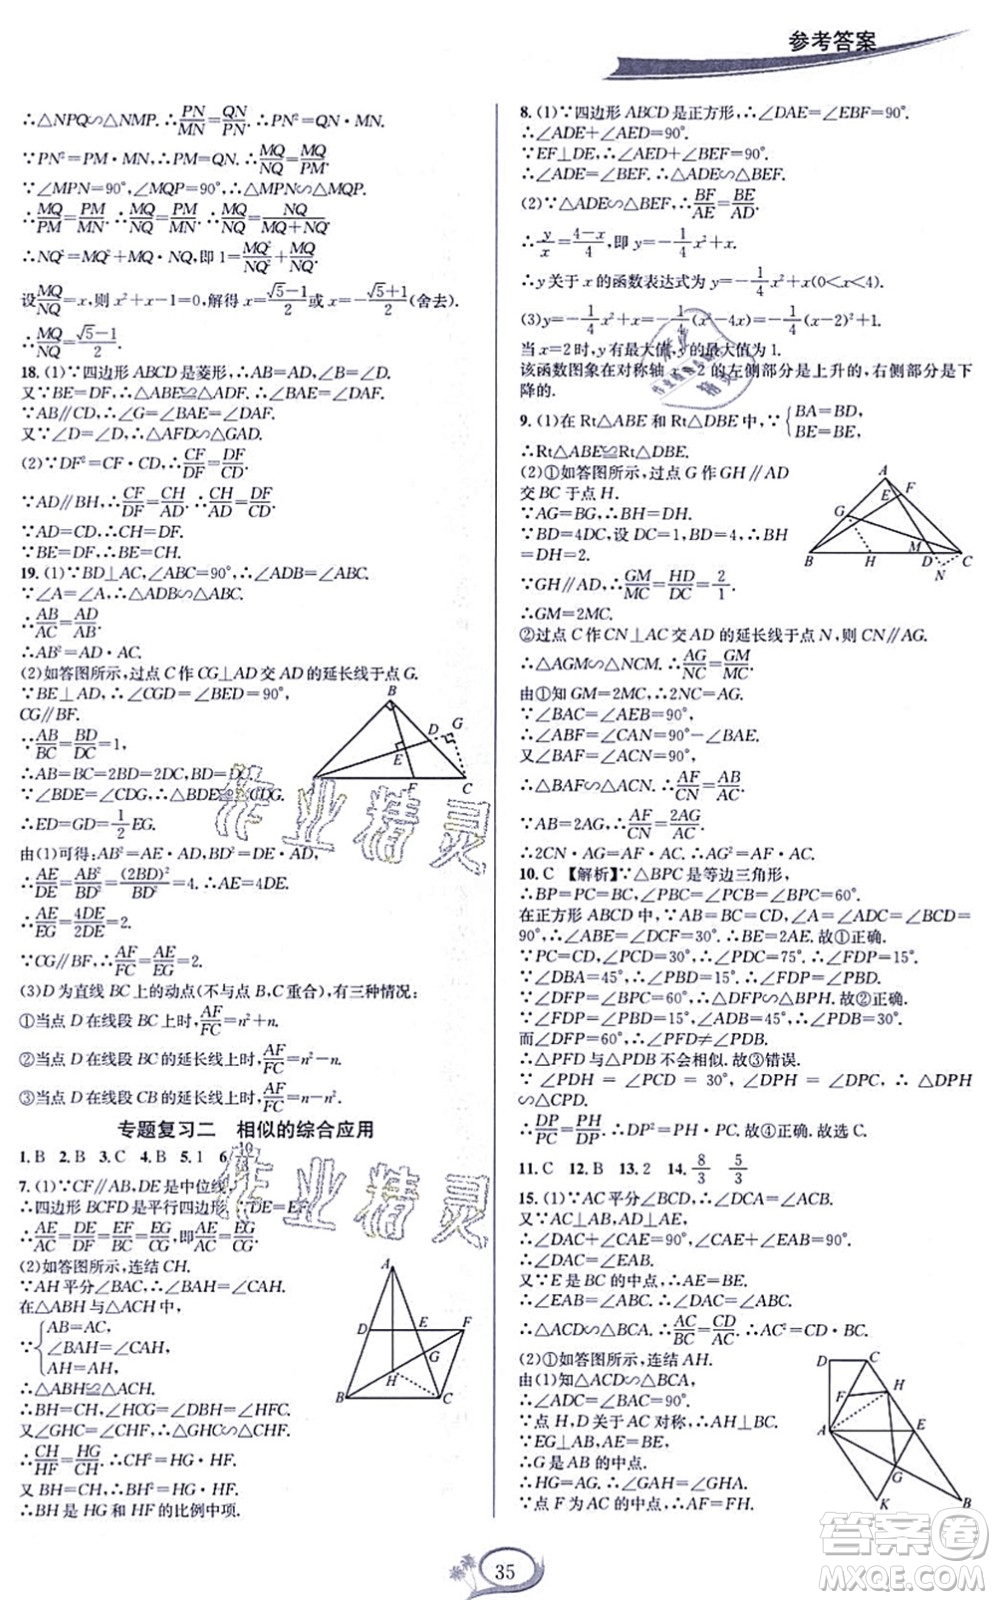 参考答案
∴△NPQ∽△NMP. ∴PN/MN=QN/PN. ∴PN²=QN·MN.
∵PN²=PM·MN, ∴PM=QN. ∴MQ/NQ=MQ/PM.
∵∠MPN=90°,∠MQP=90°,∴△MPN∽△MQP.
∴MQ/PM=PM/MN. ∴MQ/NQ=PM/MN. ∴MQ/NQ=NQ/(MQ+NQ).
∴NQ²=MQ²+MQ·NQ,即1=MQ²/NQ²+MQ/NQ.
设MQ/NQ=x,则x²+x-1=0,解得x=(√5-1)/2或x=-(√5+1)/2(舍去).
∴MQ/NQ=(√5-1)/2.
18. (1)∵四边形ABCD是菱形,∴AB=AD,∠B=∠D.
又∵BE=DF,∴△ABE≌△ADF. ∴∠BAE=∠DAF.
∵AB∥CD,∴∠G=∠BAE=∠DAF.
又∵∠D=∠D,∴△AFD∽△GAD.
(2)∵DF²=CF·CD,∴CF/DF=DF/CD.
∵AD∥BH,∴CF/DF=CH/AD. ∴CH/AD=DF/CD.
∵AD=CD,∴CH=DF.
∵BE=DF,∴BE=CH.
19. (1)∵BD⊥AC,∠ABC=90°,∴∠ADB=∠ABC.
∵∠A=∠A,∴△ADB∽△ABC.
∴AB/AC=AD/AB.
∴AB²=AD·AC.
(2)如答图所示,过点C作CG⊥AD交AD的延长线于点G.
∵BE⊥AD,∴∠CGD=∠BED=90°,
CG∥BF.
∵AB/BC=BD/DC=1,
∴AB=BC=2BD=2DC,BD=DC.
∵∠BDE=∠CDG,∴△BDE≌△CDG.
∴ED=GD=1/2EG.
由(1)可得:AB²=AE·AD,BD²=DE·AD,
∴AE/DE=AB²/BD²=(2BD)²/BD²=4. ∴AE=4DE.
∴AE/EG=4DE/2DE=2.
∵CG∥BF,∴AF/FC=AE/EG=2.
(3)D为直线BC上的动点(不与点B,C重合),有三种情况:
①当点D在线段BC上时,AF/FC=n²+n.
②当点D在线段BC的延长线上时,AF/FC=n²-n.
③当点D在线段CB的延长线上时,AF/FC=n-n².
B D G E F C
专题复习二 相似的综合应用
1. B 2. B 3. C 4. B 5. 1 6.
7. (1)∵CF∥AB,DE是中位线,
∴四边形BCFD是平行四边形,∵DE=EF.
∴AE/EC=DE/DF=EF/DF=EG/BG,即AE/EC=EG/BG.
(2)如答图所示,连结CH.
∵AH平分∠BAC,∴∠BAH=∠CAH.
在△ABH与△ACH中,
∵{AB=AC,
∠BAH=∠CAH,
AH=AH,
∴△ABH≌△ACH.
∴BH=CH,∠HCG=∠DBH=∠HFC.
又∠GHC=∠CHF,∴△GHC∽△CHF.
∴CH/HF=HG/CH. ∴CH²=HG·HF.
又BH=CH,∴BH²=HG·HF.
∴BH是HG和HF的比例中项.
A D E F G H B C
8. (1)∵四边形ABCD是正方形,∴∠DAE=∠EBF=90°.
∴∠ADE+∠AED=90°.
∵EF⊥DE,∴∠AED+∠BEF=90°.
∴∠ADE=∠BEF. ∴△ADE∽△BEF.
(2)∵△ADE∽△BEF,∴BF/AE=BE/AD.
∴y/x=(4-x)/4,即y=-1/4x²+x.
∴y关于x的函数表达式为y=-1/4x²+x(0<x<4).
(3)y=-1/4x²+x=-1/4(x²-4x)=-1/4(x-2)²+1.
当x=2时,y有最大值,y的最大值为1.
该函数图象在对称轴x=2的左侧部分是上升的,右侧部分是下
降的.
9. (1)在Rt△ABE和Rt△DBE中,∵{BA=BD,
BE=BE,
∴Rt△ABE≌Rt△DBE.
(2)①如答图所示,过点G作GH∥AD
交BC于点H.
∵AG=BG,∴BH=DH.
∵BD=4DC,设DC=1,BD=4,∴BH
=DH=2.
∵GH∥AD,∴GM/MC=HD/DC=2/1.
∴GM=2MC.
A E F G M B H D C N
②过点C作CN⊥AC交AD的延长线于点N,则CN∥AG.
∴△AGM∽△NCM. ∴AG/NC=GM/MC.
由①知GM=2MC,∴2NC=AG.
∵∠BAC=∠AEB=90°,
∴∠ABF=∠CAN=90°-∠BAE.
又∵∠BAF=∠ACN=90°,
∴△BAF∽△ACN. ∴AF/CN=AB/AC.
∵AB=2AG,∴AF/CN=2AG/AC.
∴2CN·AG=AF·AC. ∴AG²=AF·AC.
10. C 【解析】∵△BPC是等边三角形,
∴BP=PC=BC,∠PBC=∠PCB=∠BPC=60°.
在正方形ABCD中,∵AB=BC=CD,∠A=∠ADC=∠BCD=
90°,∴∠ABE=∠DCF=30°. ∴BE=2AE. 故①正确.
∵PC=CD,∠PCD=30°,∴∠PDC=75°. ∴∠FDP=15°.
∵∠DBA=45°,∴∠PBD=15°. ∴∠FDP=∠PBD.
∵∠DFP=∠BPC=60°,∴△DFP∽△BPH. 故②正确.
∵∠FDP=∠PBD=15°,∠ADB=45°,∴∠PDB=30°.
而∠DFP=60°,∴∠PFD≠∠PDB.
∴△PFD与△PDB不会相似. 故③错误.
∵∠PDH=∠PCD=30°,∠DPH=∠DPC,∴△DPH∽
△CPD.
∴DP/PC=PH/DP. ∴DP²=PH·PC. 故④正确. 故选C.
11. C 12. B 13. 2 14. 8/3 5/3
15. (1)∵AC平分∠BCD,∴∠DCA=∠ACB.
又∵AC⊥AB,AD⊥AE,
∴∠DAC+∠CAE=90°,∠CAE+∠EAB=90°.
∴∠DAC=∠EAB.
又∵E是BC的中点,∴AE=BE.
∴∠EAB=∠ABC. ∴∠DAC=∠ABC.
∴△ACD∽△BCA. ∴AC/BC=CD/AC. ∴AC²=CD·BC.
(2)①如答图所示,连结AH.
由(1)知△ACD∽△BCA,
∴∠ADC=∠BAC=90°.
∵点H,D关于AC对称,∴AH⊥BC.
∵EG⊥AB,AE=BE,
∴G是AB的中点.
∴HG=AG. ∴∠GAH=∠GHA.
∵点F为AC的中点,∴AF=FH.
D C F H A E G K B
作业精灵
作业精灵
答案圈
MXQE.COM
35